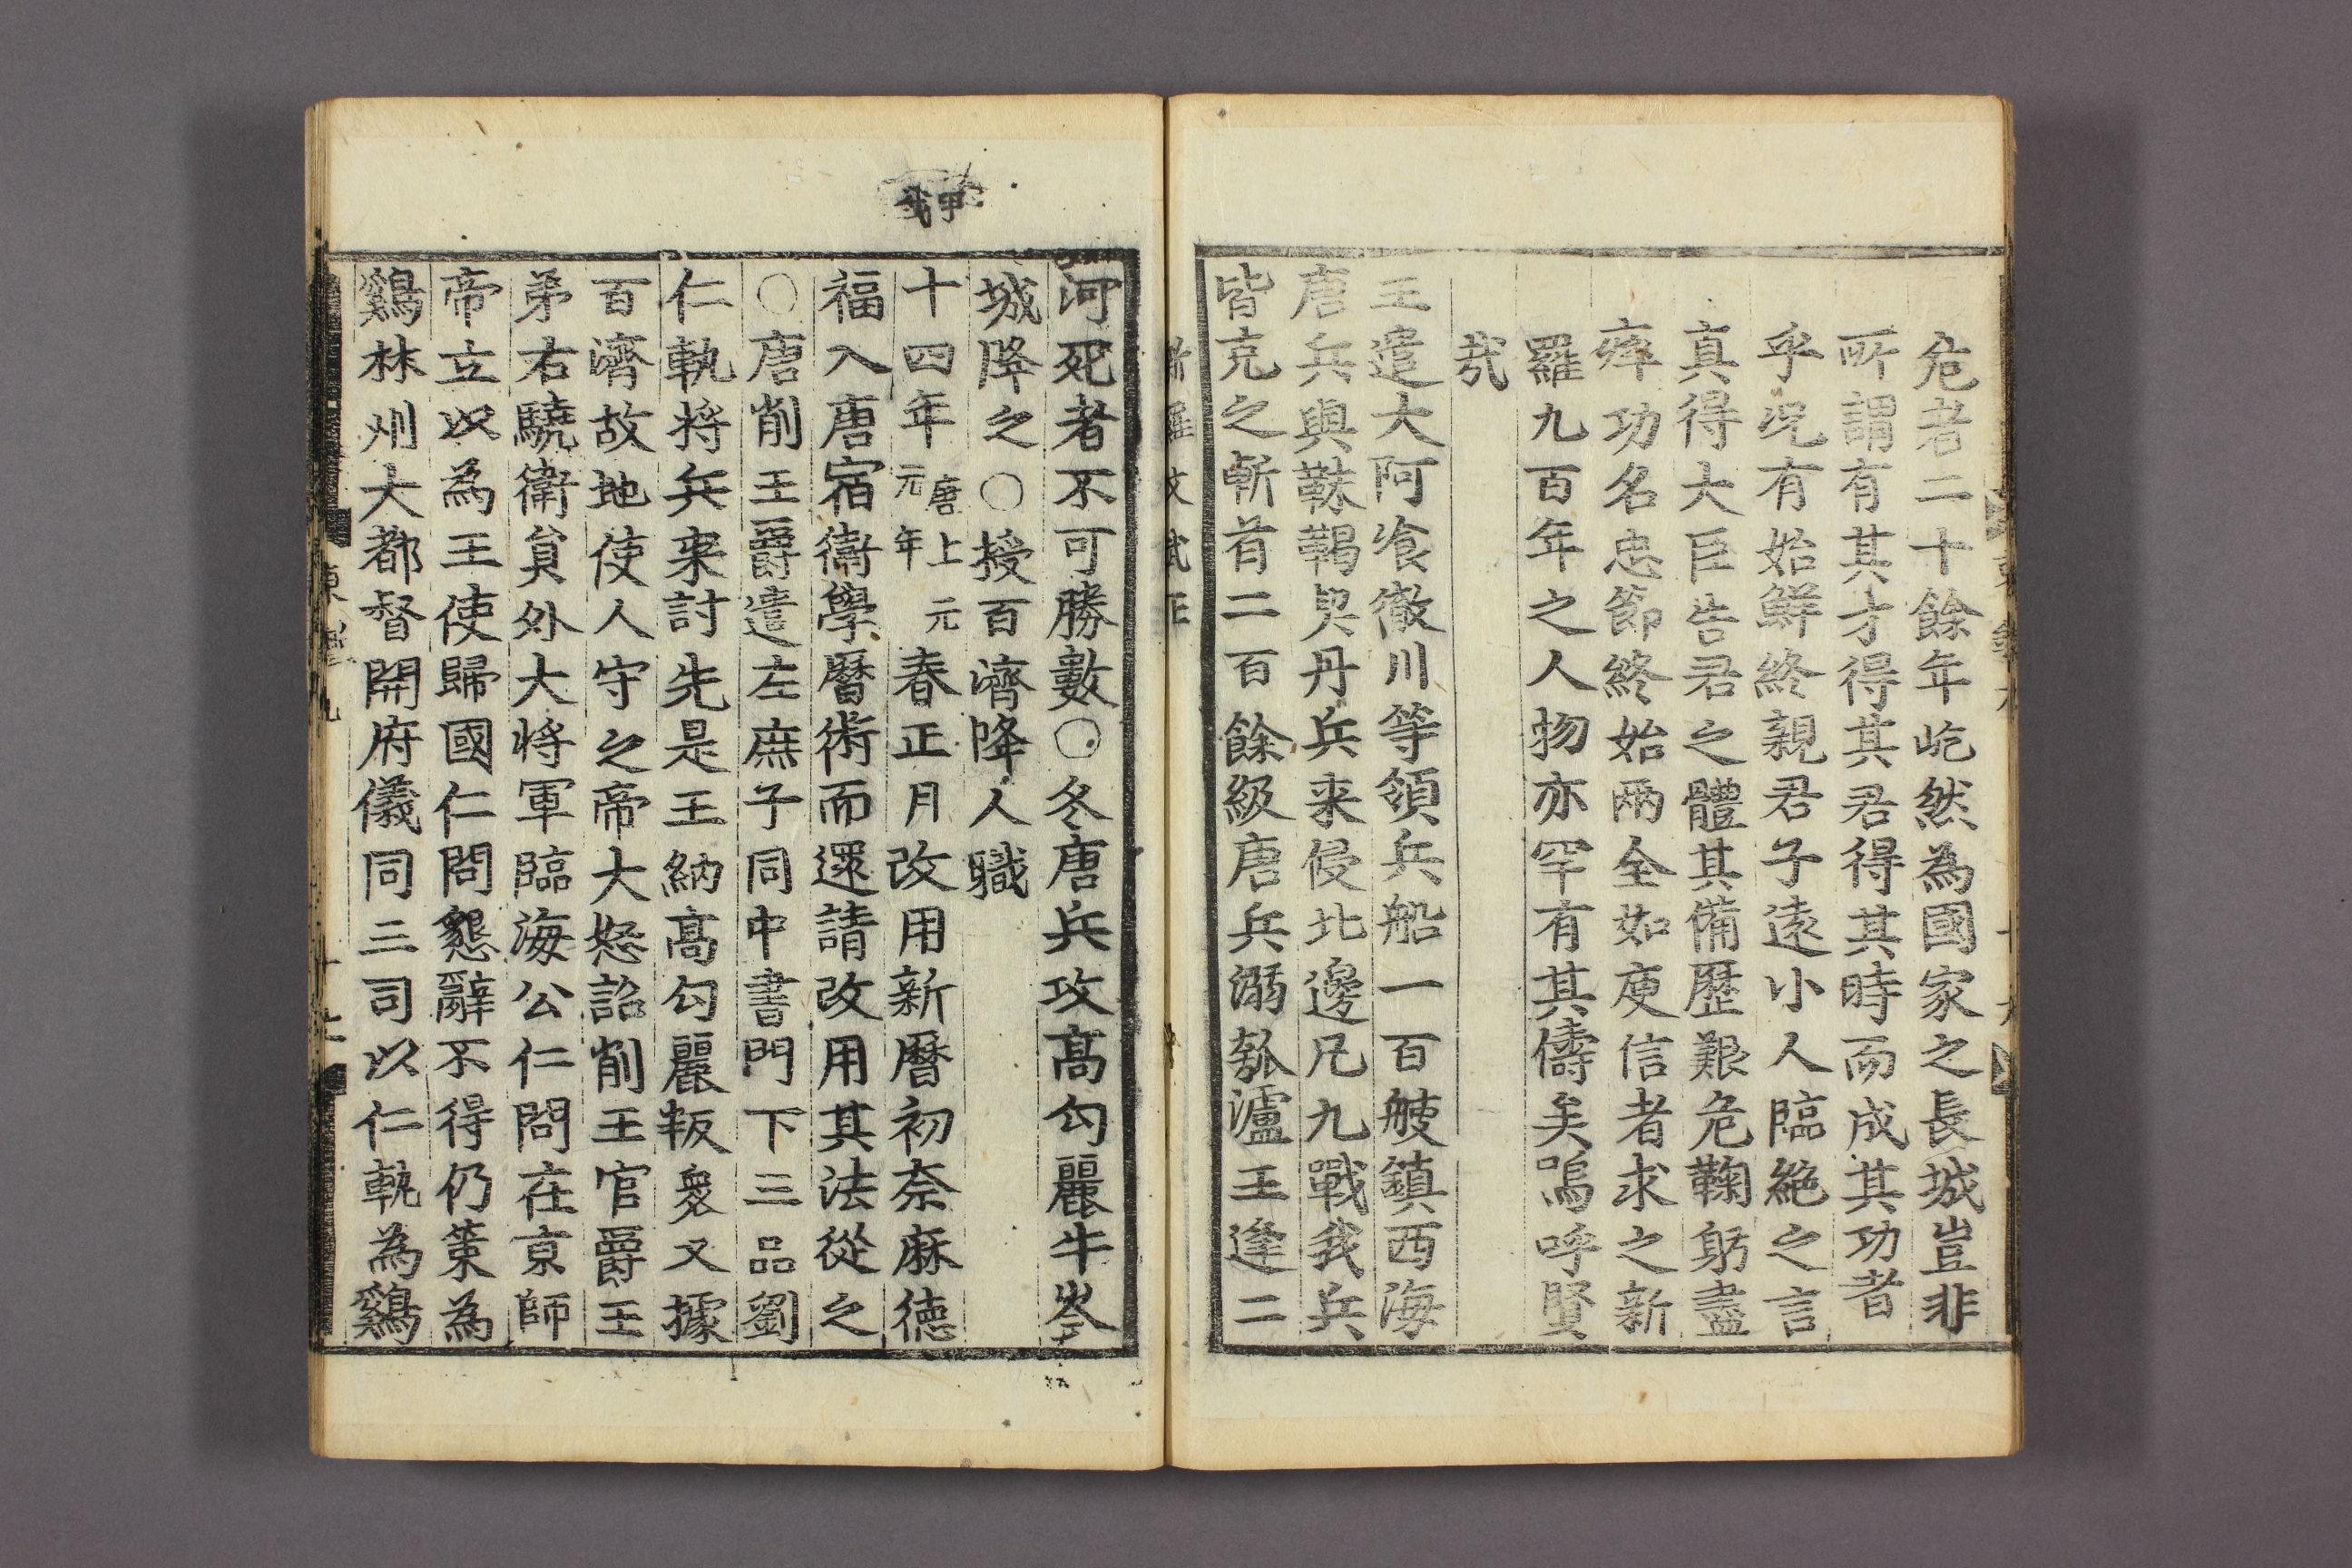 危者二十餘年屹然為國家之長城豈非
所謂有其才得其君得其時而成其功者
乎况有始鮮終親君子遠小人臨絶之言
真得大臣告君之體其備歷艱危鞠躬盡
瘁功名忠節終始兩全如庾信者求之新
羅九百年之人物亦罕有其儔矣嗚呼賢
㢤
王遣大阿飡徹川等領兵船一百艘鎮西海
唐兵與靺鞨契丹兵来侵北邊凡九戰我兵
皆克之斬首二百餘級唐兵溺瓠瀘王逢二
新羅文武王
甲戌
河死者不可勝數○冬唐兵攻高勾麗牛岑
城降之○授百濟降人職
十四年唐上元元年春正月改用新曆初奈麻德
福入唐宿衛學曆術而還請改用其法從之
○唐削王爵遣左庶子同中書門下三品劉
仁軌将兵来討先是王納高勾麗叛衆又據
百濟故地使人守之帝大怒詔削王官爵王
弟右驍衛貟外大将軍臨海公仁問在京師
帝立以為王使歸國仁問懇辭不得仍策為
鷄林州大都督開府儀同三司以仁軌為鷄